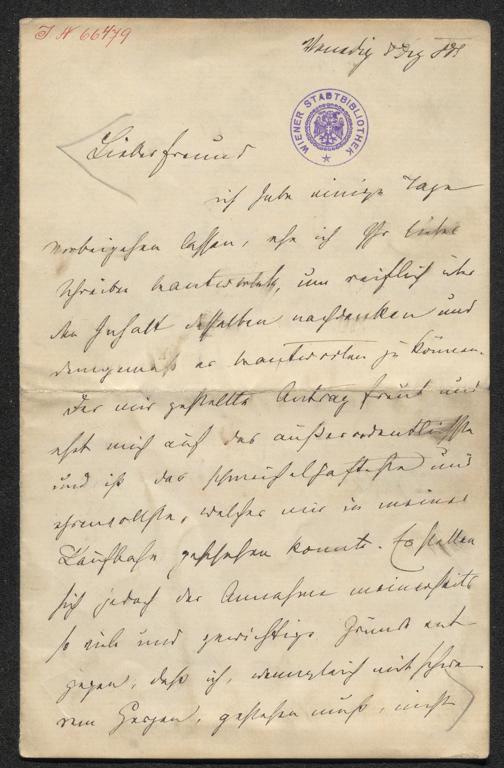 J N 66479
Venedig 8 Dez
WIENER STADTBIBLIOTHEK
Lieber Freund
ich habe einige Tage
vorbeigehen lassen, ehe ich Ihr liebes
Schreiben beantwortete, um reiflich über
den Inhalt desselben nachdenken und
demgemäß es beantworten zu können.
Der mir gestellte Antrag freut und
ehrt mich auf das außerordentlichste
und ist das schmeichelhafteste und
ehrenvollste, welches mir in meiner
Laufbahn geschehen konnte. Es stellen
sich jedoch der Annahme meinerseits
so viele und gewichtige Gründe ent
gegen, daß ich, wenngleich mit schwe
rem Herzen, gestehen muß, nicht